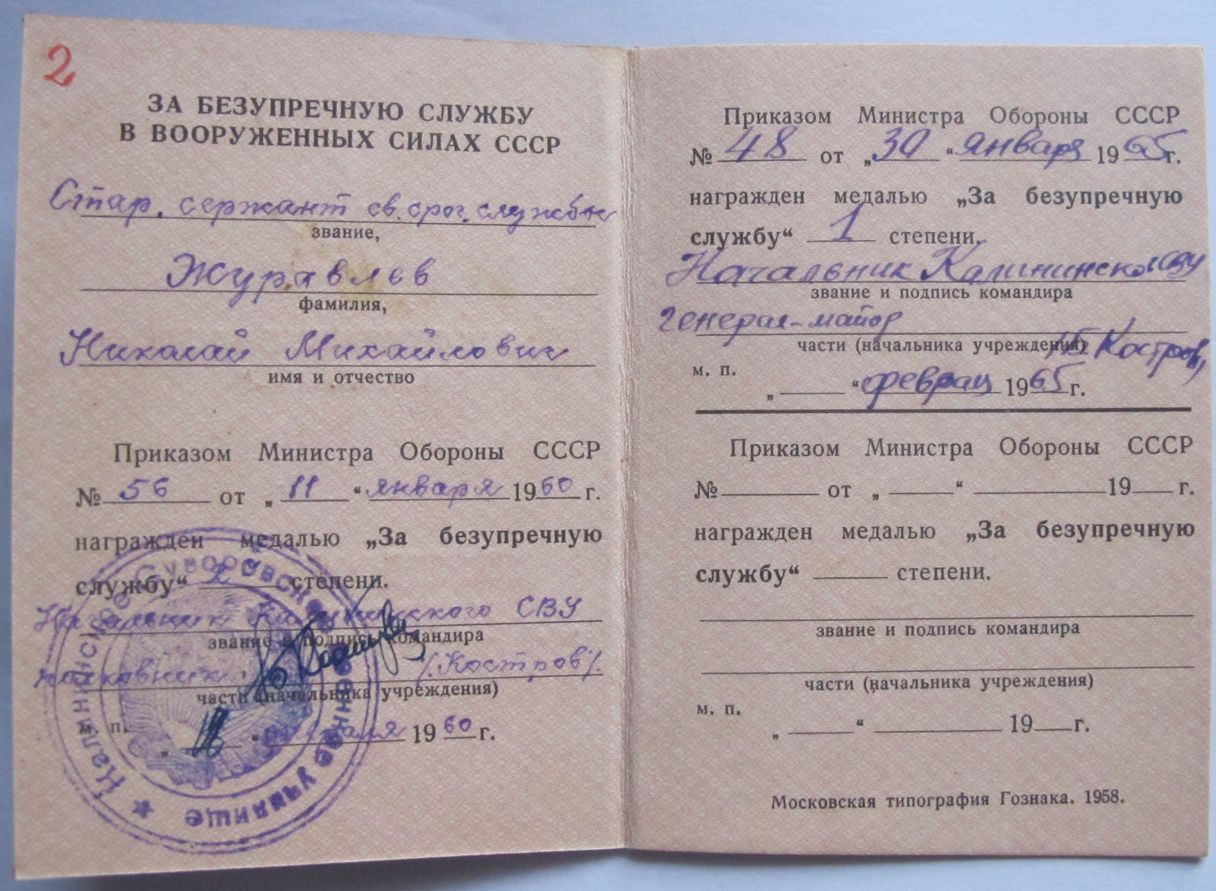 2
ЗА БЕЗУПРЕЧНУЮ СЛУЖБУ
В ВООРУЖЕННЫХ СИЛАХ СССР
Стар. сержант св. срог. службы
звание,
Журавлев
фамилия,
Николай Михайлович
имя и отчество
Приказом Министра Обороны СССР
№ 56 от „ 11 “ января 1960 г.
награжден медалью „За безупречную
службу“ 2 степени.
Начальник Калининского СВУ
звание и подпись командира
полковник /Костров/.
части (начальника учреждения)
м. п.
„ “ 1960 г.
Калининское Суворовское военное училище
Приказом Министра Обороны СССР
№ 48 от „30“ января 1965 г.
награжден медалью „За безупречную
службу“ 1 степени.
Начальник Калининск СВУ
звание и подпись командира
генерал-майор
части (начальника учреждения) Костров
м. п.
„ “ феврал 1965 г.
Приказом Министра Обороны СССР
№ от „ “ 19 г.
награжден медалью „За безупречную
службу“ степени.
звание и подпись командира
части (начальника учреждения)
м. п.
„ “ 19 г.
Московская типография Гознака. 1958.